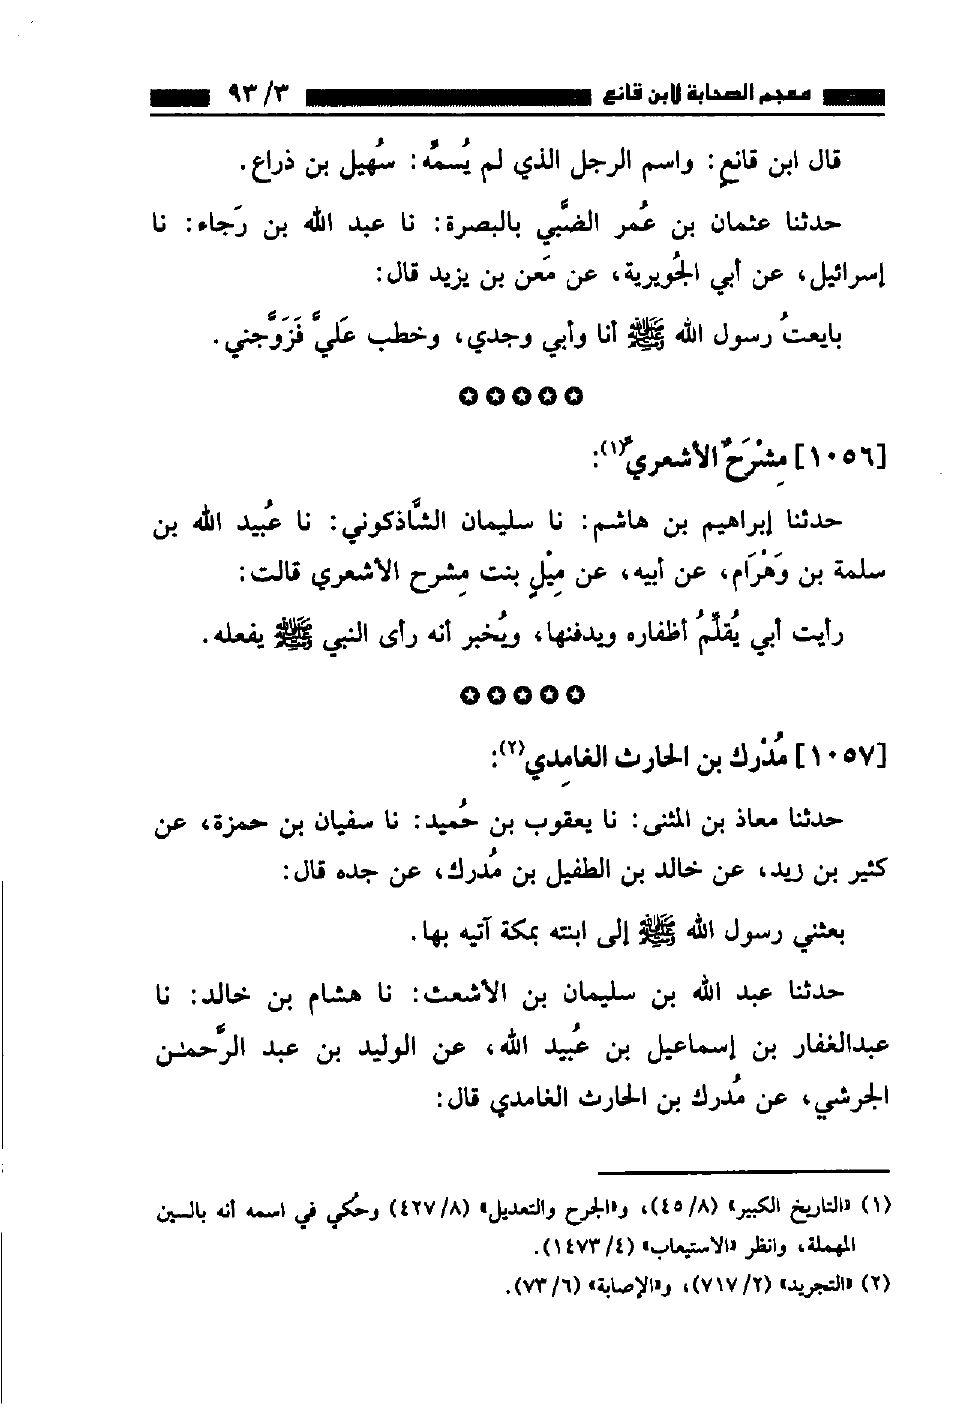 معجم الصحابة لابن قانع ٩٣/٣
قال ابن قانعٍ: واسم الرجل الذي لم يُسمَّه: سُهيل بن ذراع.
حدثنا عثمان بن عُمر الضَّبي بالبصرة: نا عبد الله بن رَجاء: نا
إسرائيل، عن أبي الجُويرية، عن مَعن بن يزيد قال:
بايعتُ رسول الله ﷺ أنا وأبي وجدي، وخطب عَليَّ فَزَوَّجني.
✪✪✪✪✪
[١٠٥٦] مِشْرَحٌ الأشعريُّ(١):
حدثنا إبراهيم بن هاشم: نا سليمان الشَّاذكوني: نا عُبيد الله بن
سلمة بن وَهْرَام، عن أبيه، عن مِيْلٍ بنت مِشرح الأشعري قالت:
رأيت أبي يُقلِّمُ أظفاره ويدفنها، ويُخبر أنه رأى النبي ﷺ يفعله.
✪✪✪✪✪
[١٠٥٧] مُدْرك بن الحارث الغامِدي(٢):
حدثنا معاذ بن المثنى: نا يعقوب بن حُميد: نا سفيان بن حمزة، عن
كثير بن زيد، عن خالد بن الطفيل بن مُدرك، عن جده قال:
بعثني رسول الله ﷺ إلى ابنته بمكة آتيه بها.
حدثنا عبد الله بن سليمان بن الأشعث: نا هشام بن خالد: نا
عبدالغفار بن إسماعيل بن عُبيد الله، عن الوليد بن عبد الرَّحمٰن
الجرشي، عن مُدرك بن الحارث الغامدي قال:
(١) «التاريخ الكبير» (٤٥/٨)، و«الجرح والتعديل» (٤٢٧/٨) وحُكي في اسمه أنه بالسين
المهملة، وانظر «الاستيعاب» (١٤٧٣/٤).
(٢) «التجريد» (٧١٧/٢)، و«الإصابة» (٧٣/٦).